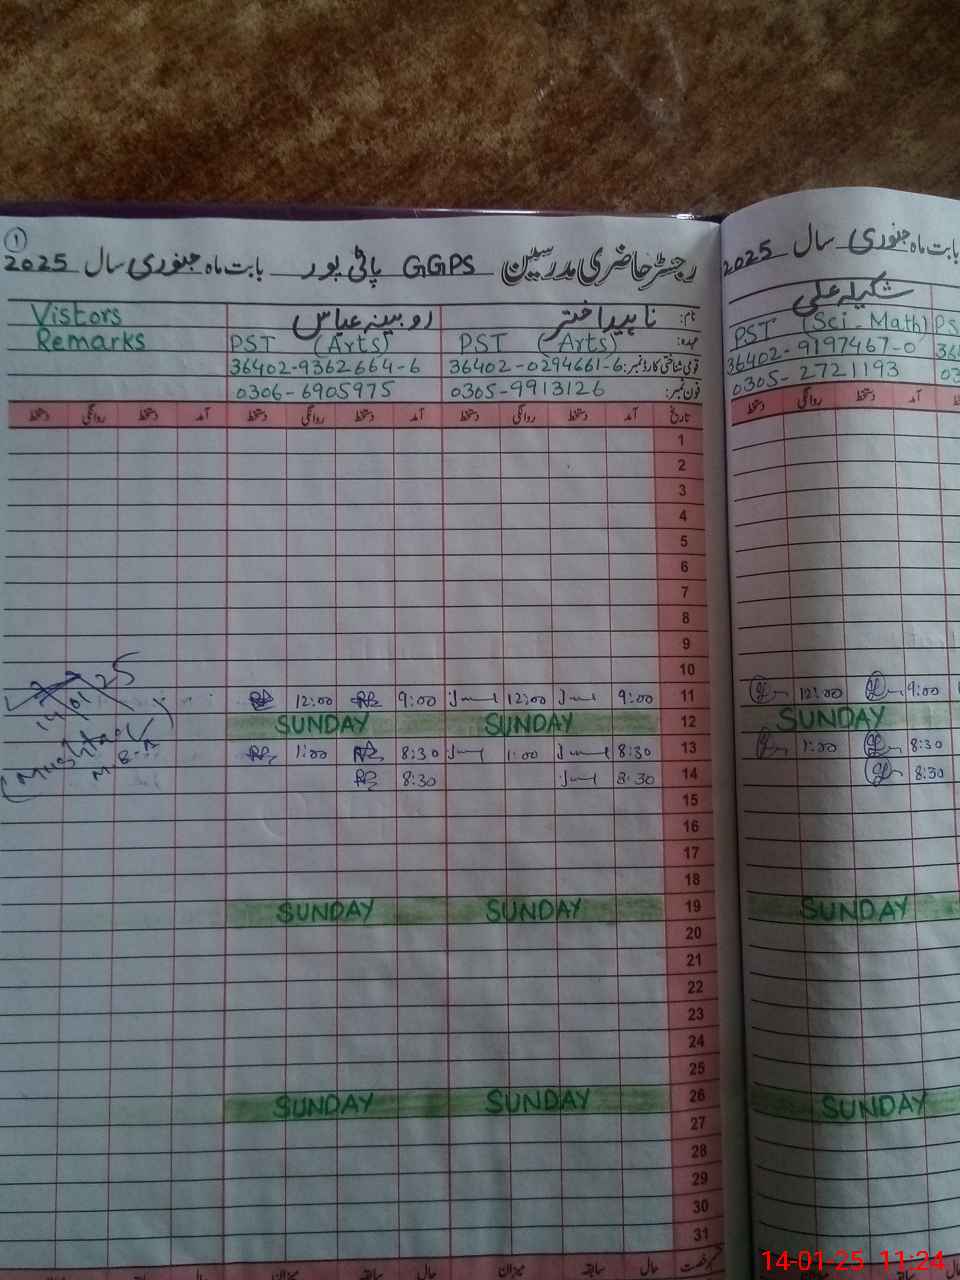 ۱
رجسٹر حاضری مدرسین GGPS پائی پور بابت ماہ جنوری سال 2025
نام: ناہید اختر روبینہ عباس Vistors
عہدہ: PST (Arts) PST (Arts) Remarks
قومی شناختی کارڈ نمبر: 36402-0294661-6 36402-9362664-6
فون نمبر: 0305-9913126 0306-6905975
تاریخ آمد دستخط روانگی دستخط آمد دستخط روانگی دستخط آمد دستخط روانگی دستخط
1
2
3
4
5
6
7
8
9
10
11 9:00 12:00 9:00 12:00
12 SUNDAY SUNDAY
13 8:30 1:00 8:30 1:00
14 8:30 8:30
14/01/25
15
16
17
18
19 SUNDAY SUNDAY
20
21
22
23
24
25
26 SUNDAY SUNDAY
27
28
29
30
31
حال سابقہ میزان حال سابقہ میزان حال سابقہ میزان
بابت ماہ جنوری سال 2025
شکیلہ علی
PST (Sci-Math) PS
36402-9197467-0 36
0305-2721193 03
آمد دستخط روانگی دستخط
9:00 12:00
SUNDAY
8:30 1:00
8:30
SUNDAY
SUNDAY
14-01-25 11:24